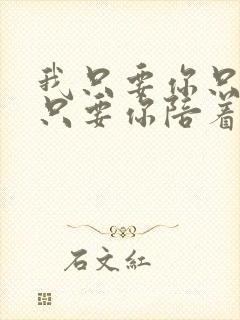 我只要你只
只要你陪着
石文红